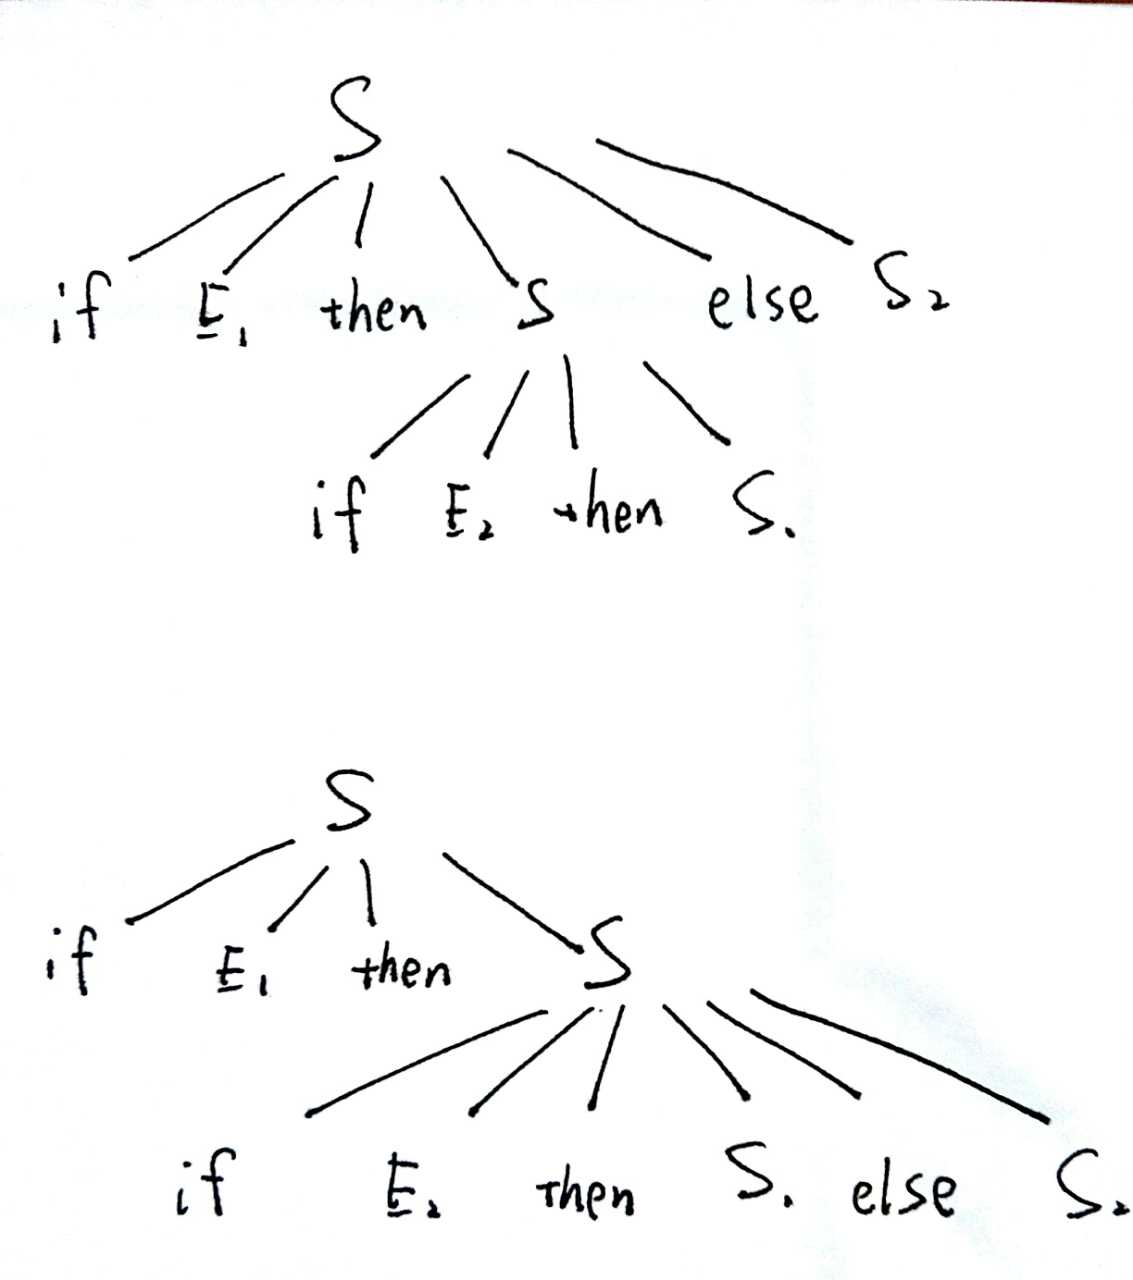 S
if E₁ then S else S₂
if E₂ then S₁
S
if E₁ then S
if E₂ then S₁ else S₂